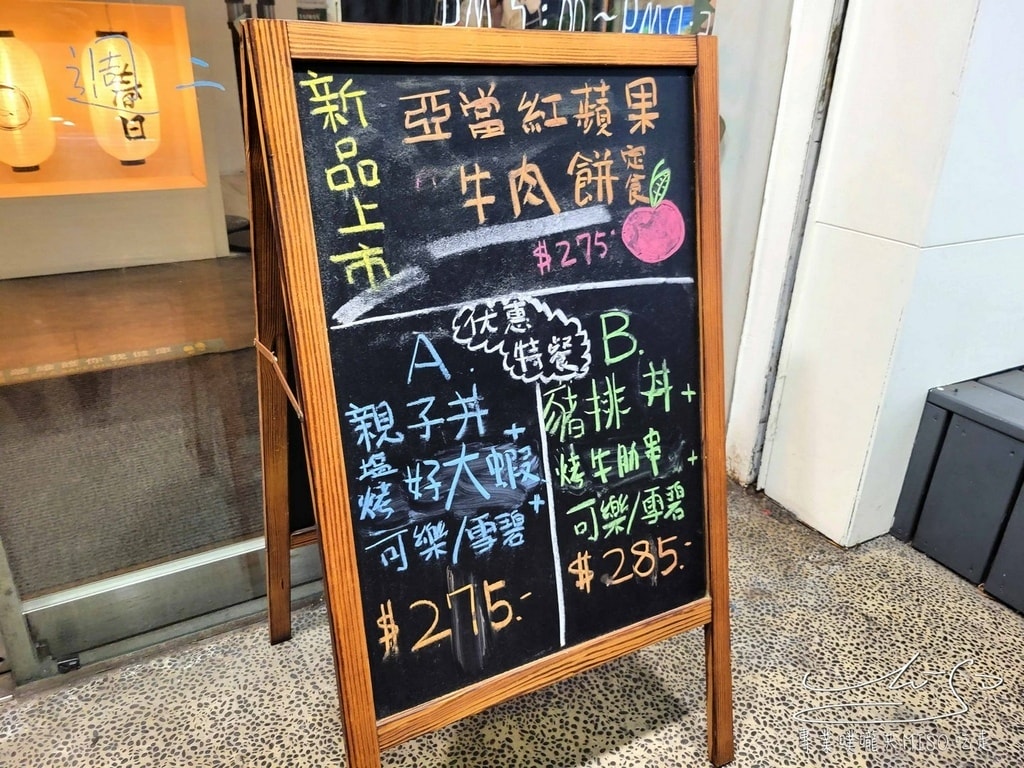 週二
春日
新品上市
亞當紅蘋果
牛肉餅定食
$275.
优惠
特餐
A.
親子丼+
塩烤好大蝦+
可樂/雪碧
$275.-
B.
豬排丼+
烤牛肋串+
可樂/雪碧
$285.